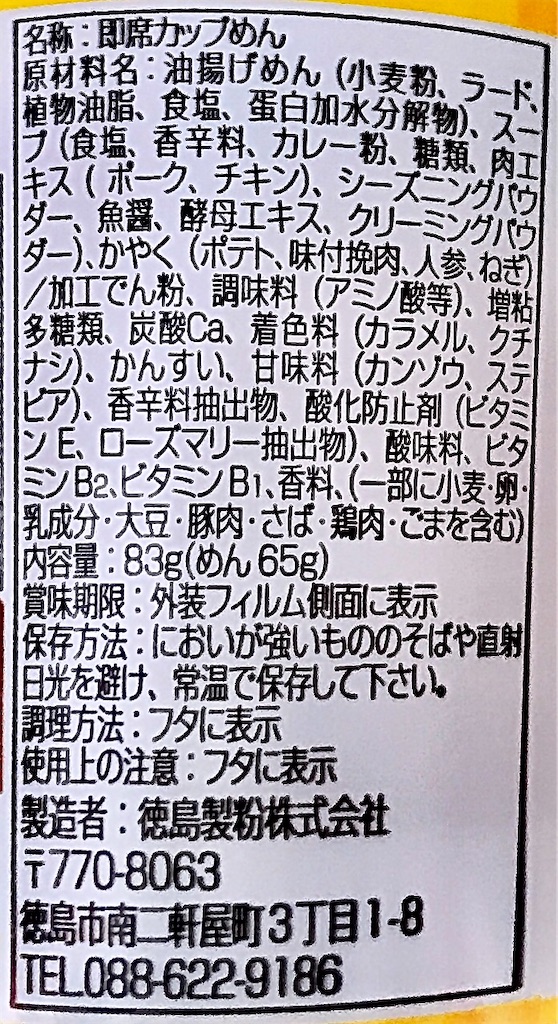 名称：即席カップめん
原材料名：油揚げめん（小麦粉、ラード、
植物油脂、食塩、蛋白加水分解物）、スー
プ（食塩、香辛料、カレー粉、糖類、肉エ
キス（ポーク、チキン）、シーズニングパウ
ダー、魚醤、酵母エキス、クリーミングパウ
ダー）、かやく（ポテト、味付挽肉、人参、ねぎ）
／加工でん粉、調味料（アミノ酸等）、増粘
多糖類、炭酸Ca、着色料（カラメル、クチ
ナシ）、かんすい、甘味料（カンゾウ、ステ
ビア）、香辛料抽出物、酸化防止剤（ビタミ
ンE、ローズマリー抽出物）、酸味料、ビタ
ミンB2、ビタミンB1、香料、（一部に小麦・卵・
乳成分・大豆・豚肉・さば・鶏肉・ごまを含む）
内容量：83g（めん65g）
賞味期限：外装フィルム側面に表示
保存方法：においが強いもののそばや直射
日光を避け、常温で保存して下さい。
調理方法：フタに表示
使用上の注意：フタに表示
製造者：徳島製粉株式会社
〒770-8063
徳島市南二軒屋町3丁目1-8
TEL.088-622-9186